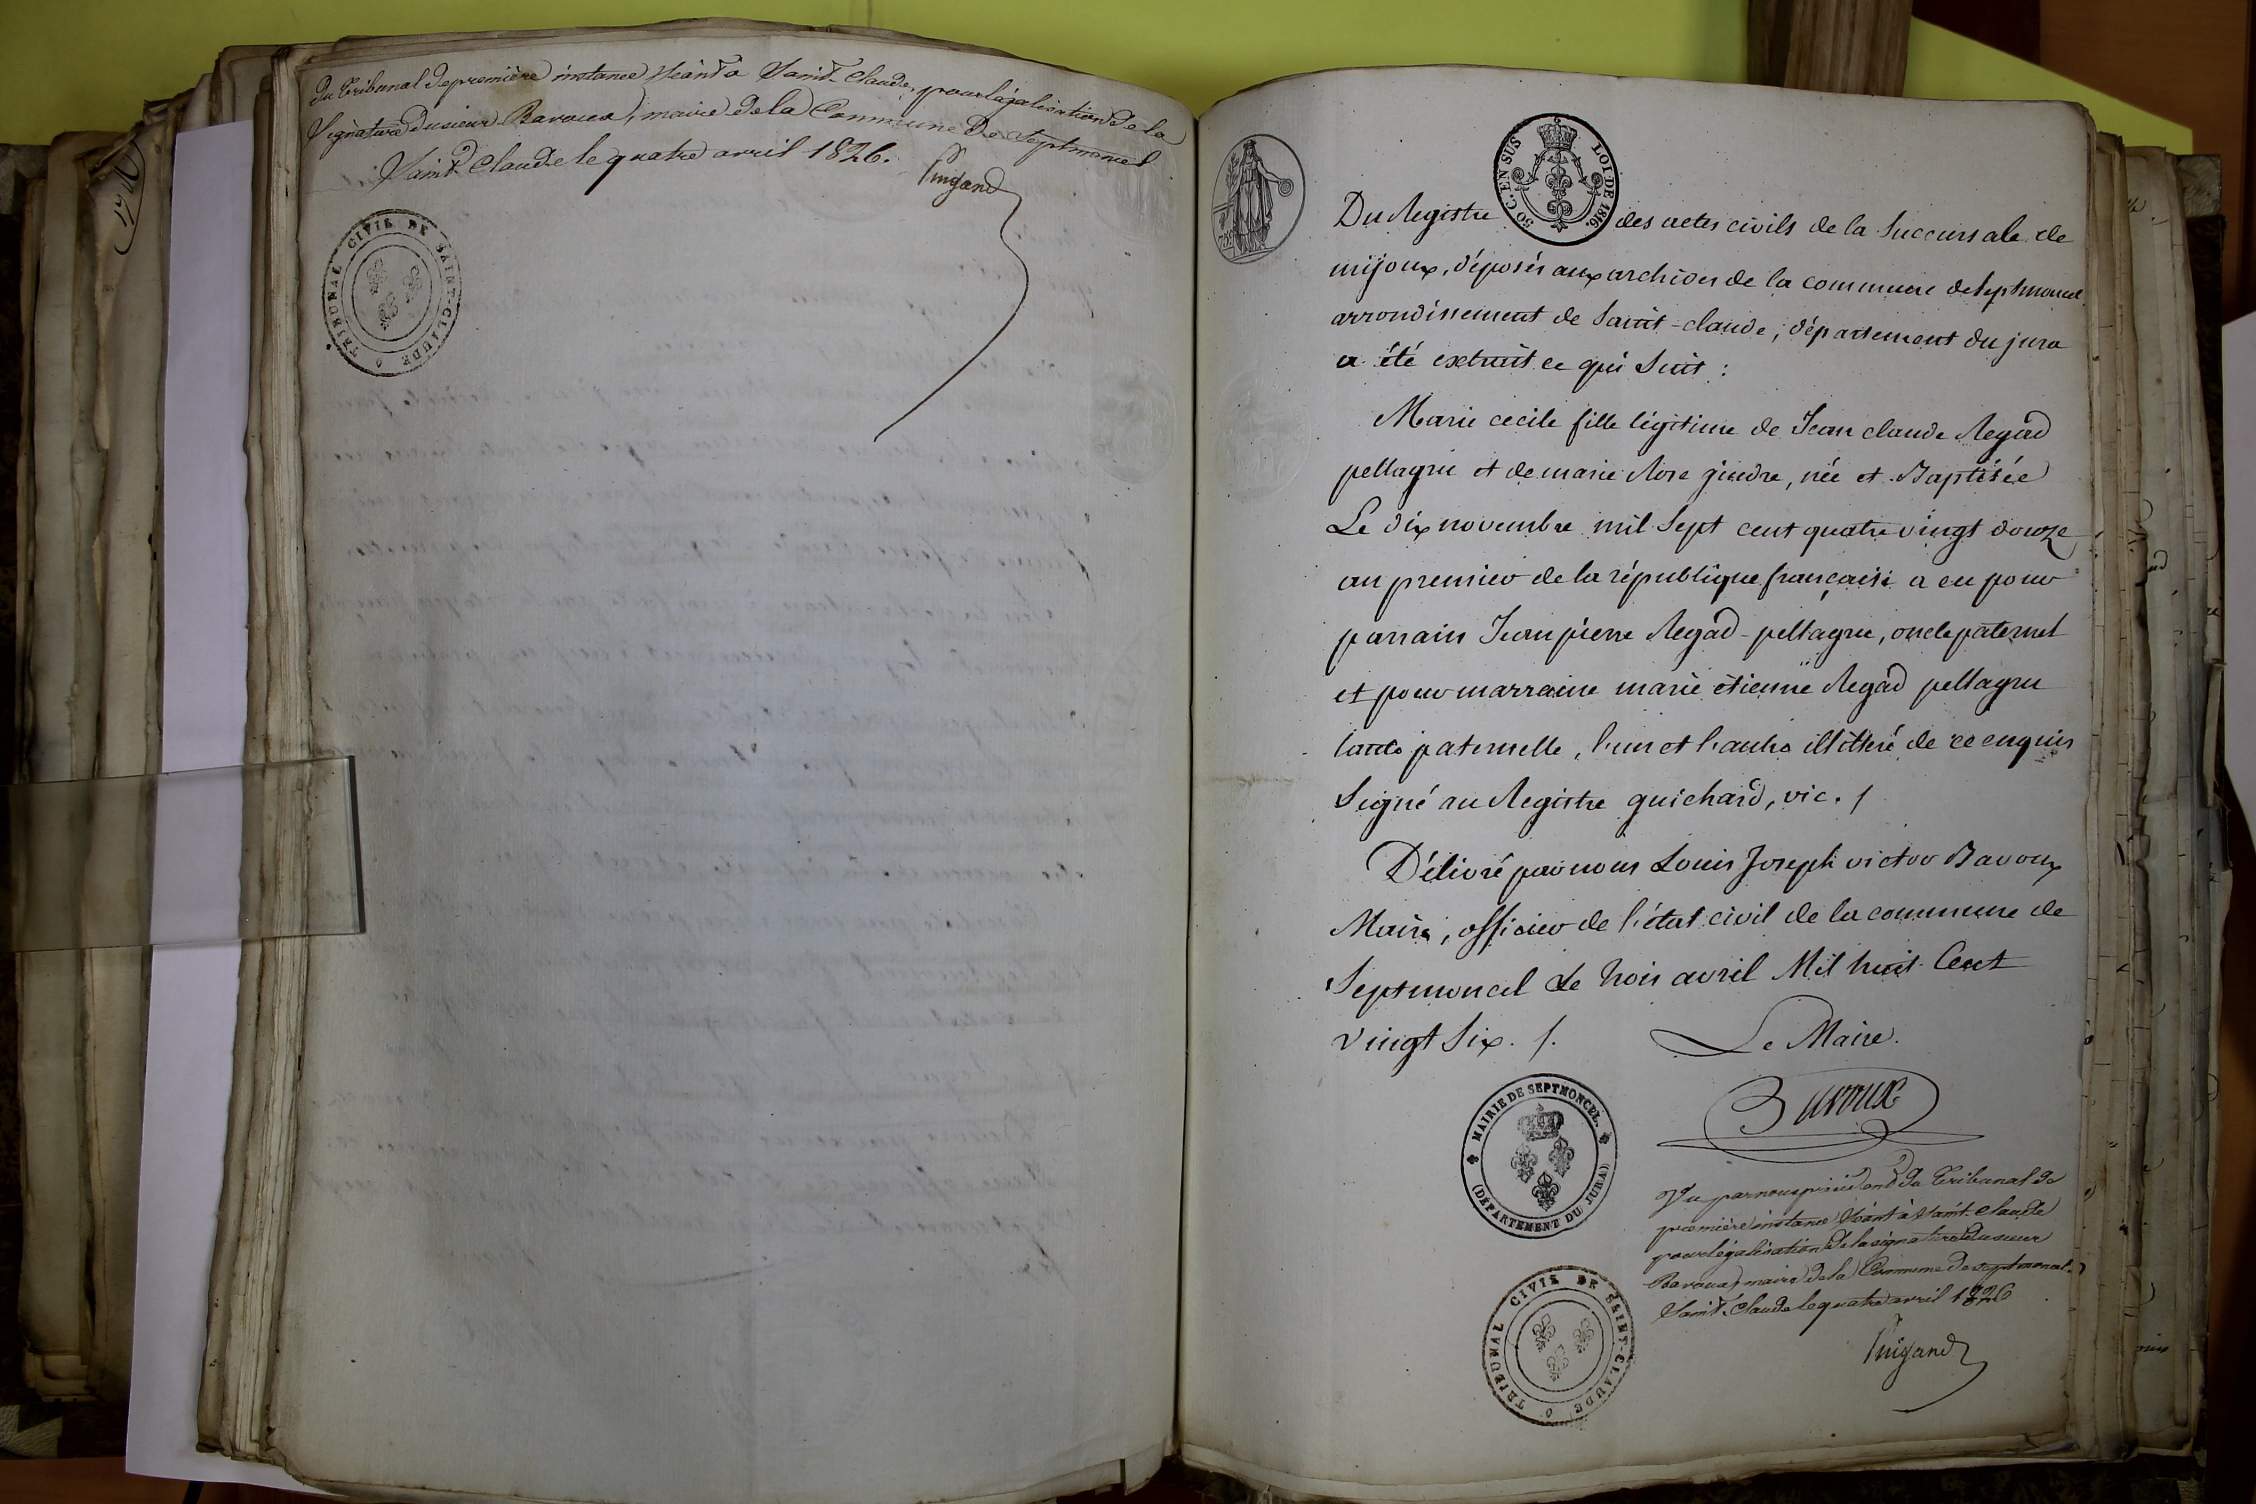 du tribunal de première instance séant à Saint-Claude, pour légalisation de la
Signature du sieur Bavoux, maire de la Commune de Septmoncel
Saint-Claude le quatre avril 1826.
TRIBUNAL CIVIL DE SAINT-CLAUDE
50 C. EN SUS LOI DE 1816.
Du Registre des actes civils de la Succursale de
mijoux, déposés aux archives de la commune de septmoncel
arrondissement de Saint-claude, département du jura
a été extrait ce qui Suit :
Marie cecile fille légitime de Jean claude Regad
pellagrue et de marie Rose gindre, née et Baptisée
Le dix novembre mil Sept cent quatre vingt douze
an premier de la république française a eu pour
parrain Jean pierre Regad-pellagrue, oncle paternel
et pour marraine marie étienne Regad pellagrue
tante paternelle, l'un et l'autre illitéré de ce enquis
Signé au Registre guichard, vic. /
Délivré par nous Louis Joseph victor Bavoux
Maire, officier de l'état civil de la commune de
Septmoncel Le trois avril Mil huit Cent
vingt Six. /.
Le Maire.
Bavoux
MAIRIE DE SEPTMONCEL
(DÉPARTEMENT DU JURA)
Vu par nous président du Tribunal de
première instance séant à Saint-Claude
pour légalisation de la signature du sieur
Bavoux, maire de la Commune de septmoncel.
Saint-Claude le quatre avril 1826
TRIBUNAL CIVIL DE SAINT-CLAUDE